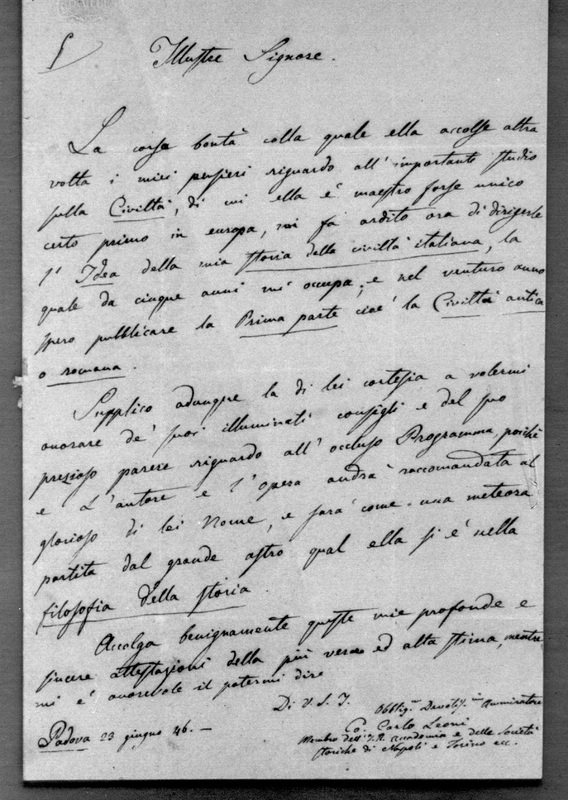 Illustre Signore.
La corse bontà colla quale ella accolse altra
volta i miei pensieri riguardo all' importante studio
sulla Civiltà, di cui ella è maestro forse unico
certo primo in europa, mi fà ardito ora di dirigerle
l' Idea della mia storia della civiltà italiana, la
quale da cinque anni mi occupa, e nel venturo anno
spero pubblicare la Prima parte cioè la Civiltà antica
o romana.
Supplico adunque la di lei cortesia a volermi
onorare de' suoi illuminati consigli e del suo
prezioso parere riguardo all' occluso Programma, poichè
e L'autore e l'opera andrà raccomandata al
glorioso di lei Nome, e sarà come una meteora
partita dal grande astro qual ella si è nella
filosofia della storia.
Accolga benignamente queste mie profonde e
sincere attestazioni della più vera ed alta stima, mentre
mi è onorevole il potermi dire
Di V. S. I.
Obblig. Devotiss. Ammiratore
Co. Carlo Leoni
Membro dell' I. R. Accademia e delle Società
storiche di Napoli e Torino ecc.
Padova 23 giugno 46. –